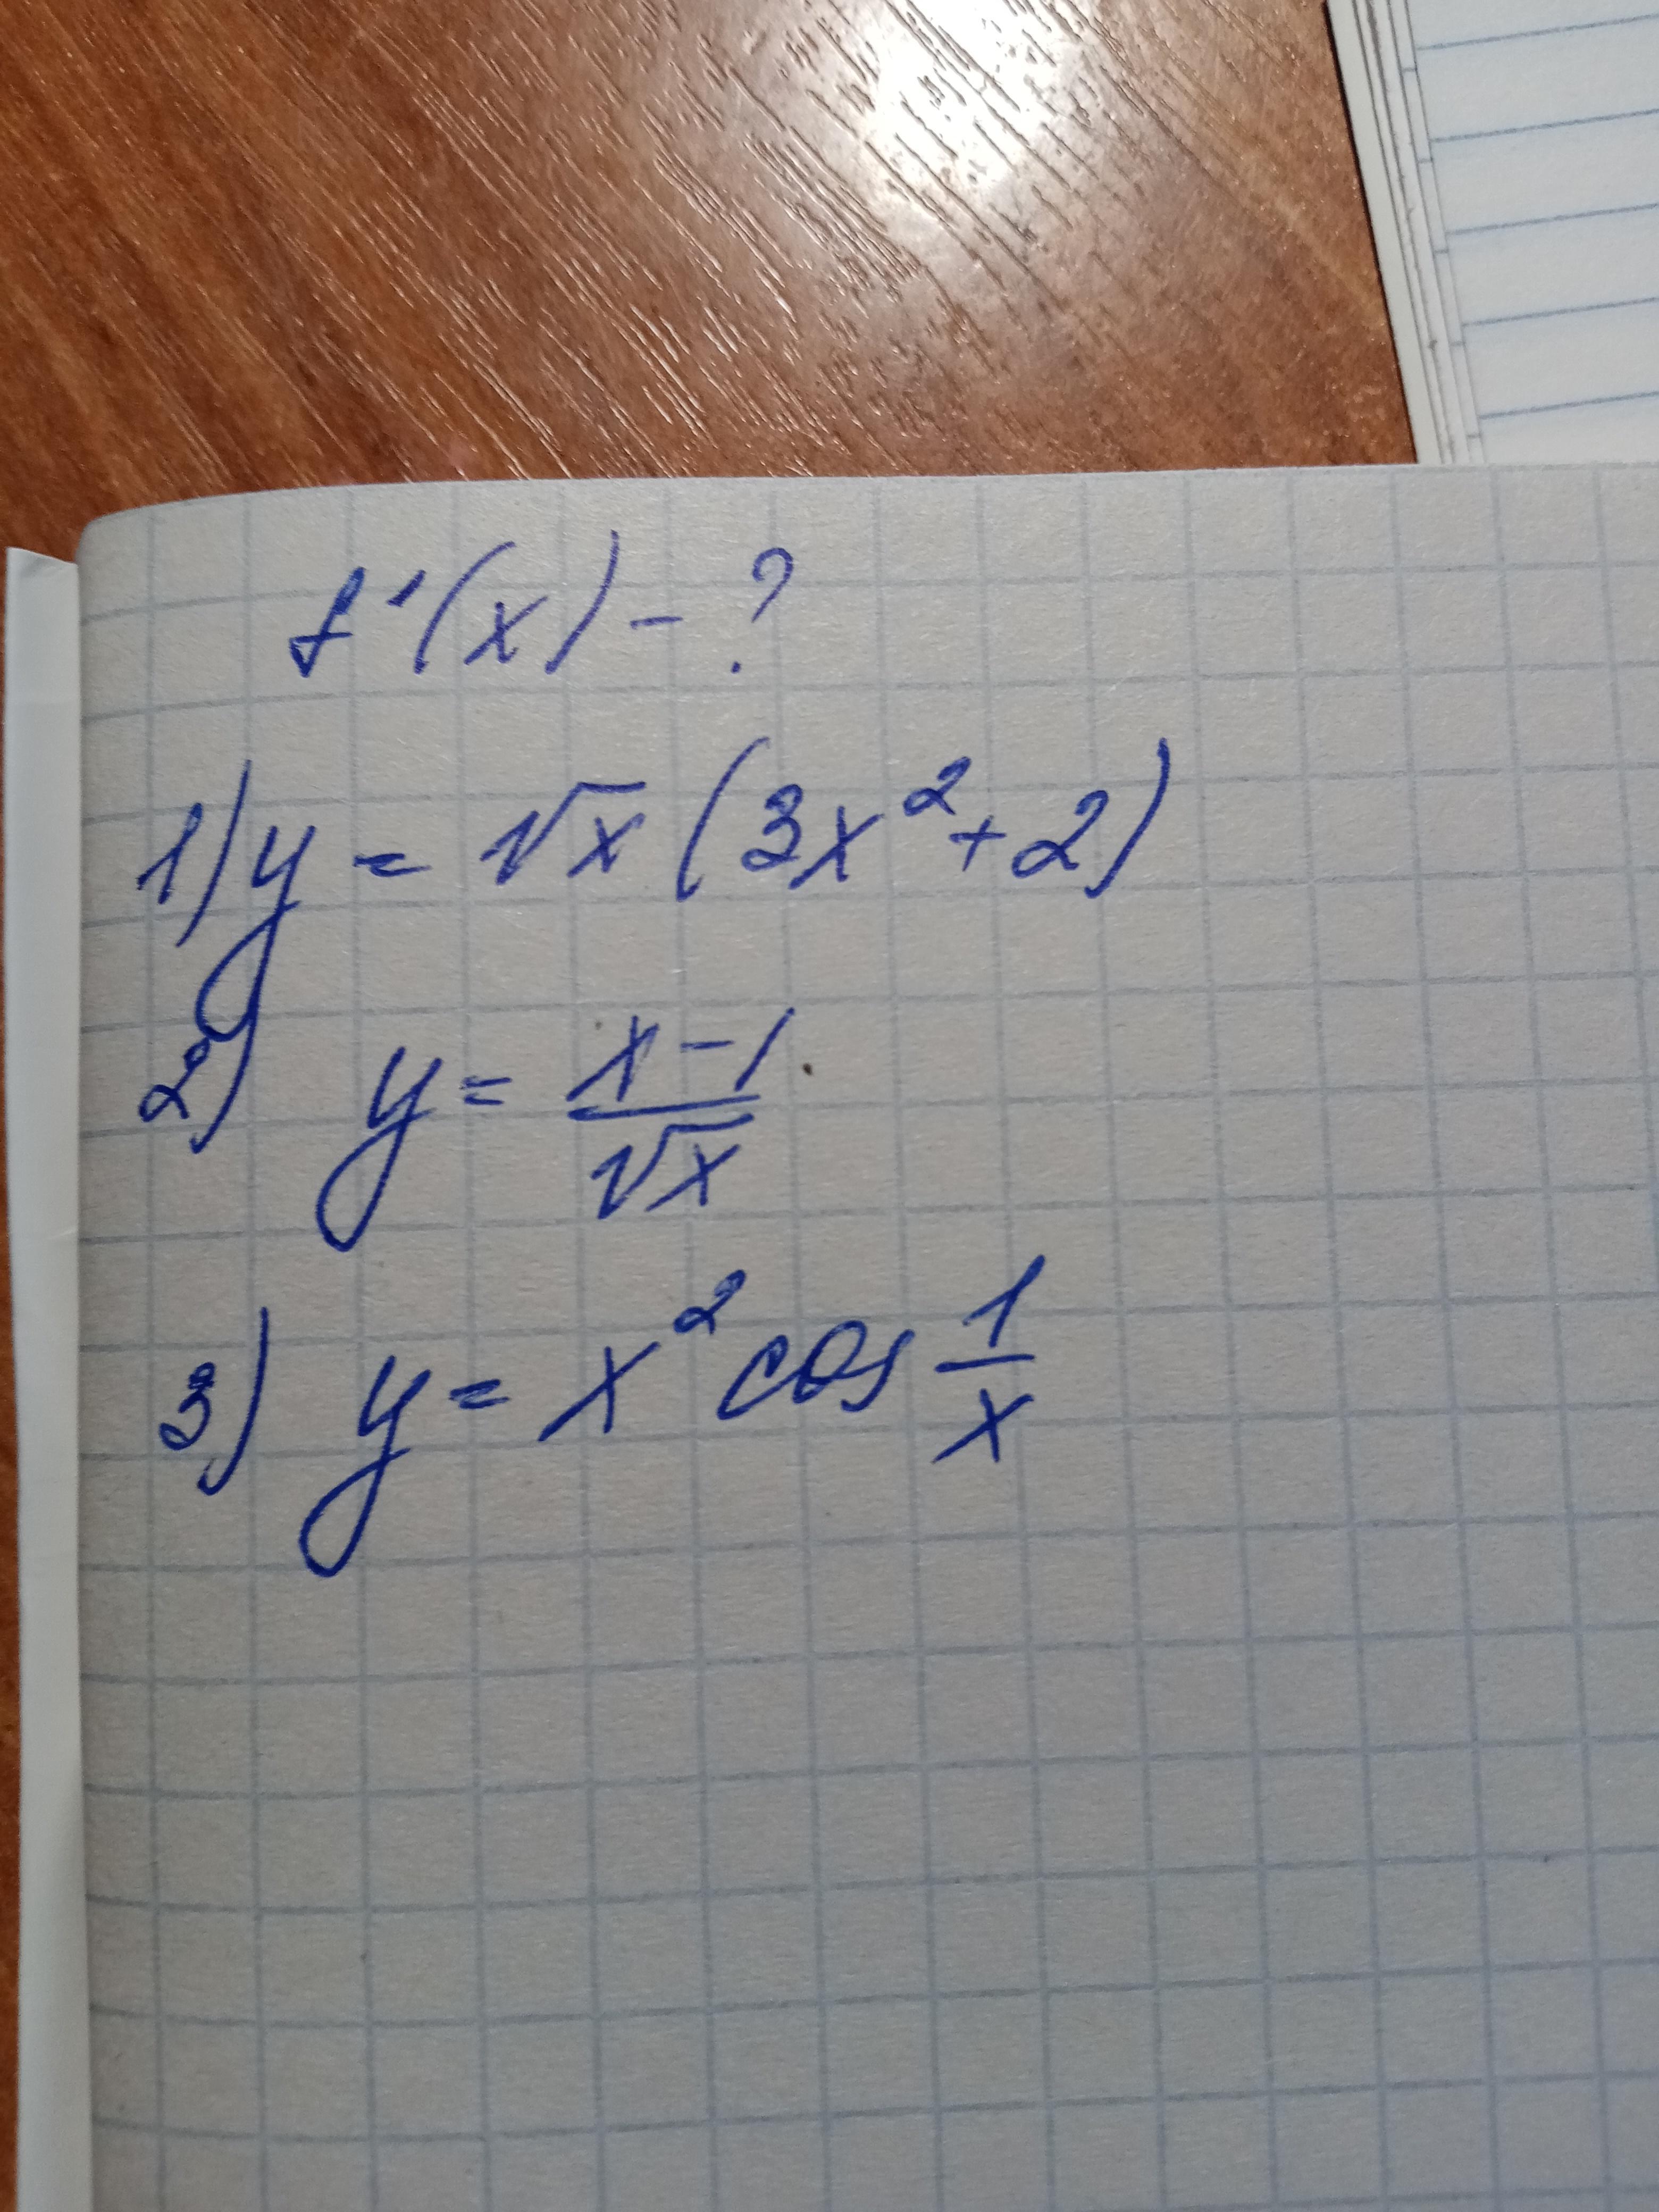 f'(x) - ?
1) y = √x (3x² + 2)
2) y = (x - 1)/√x
3) y = x² cos 1/x